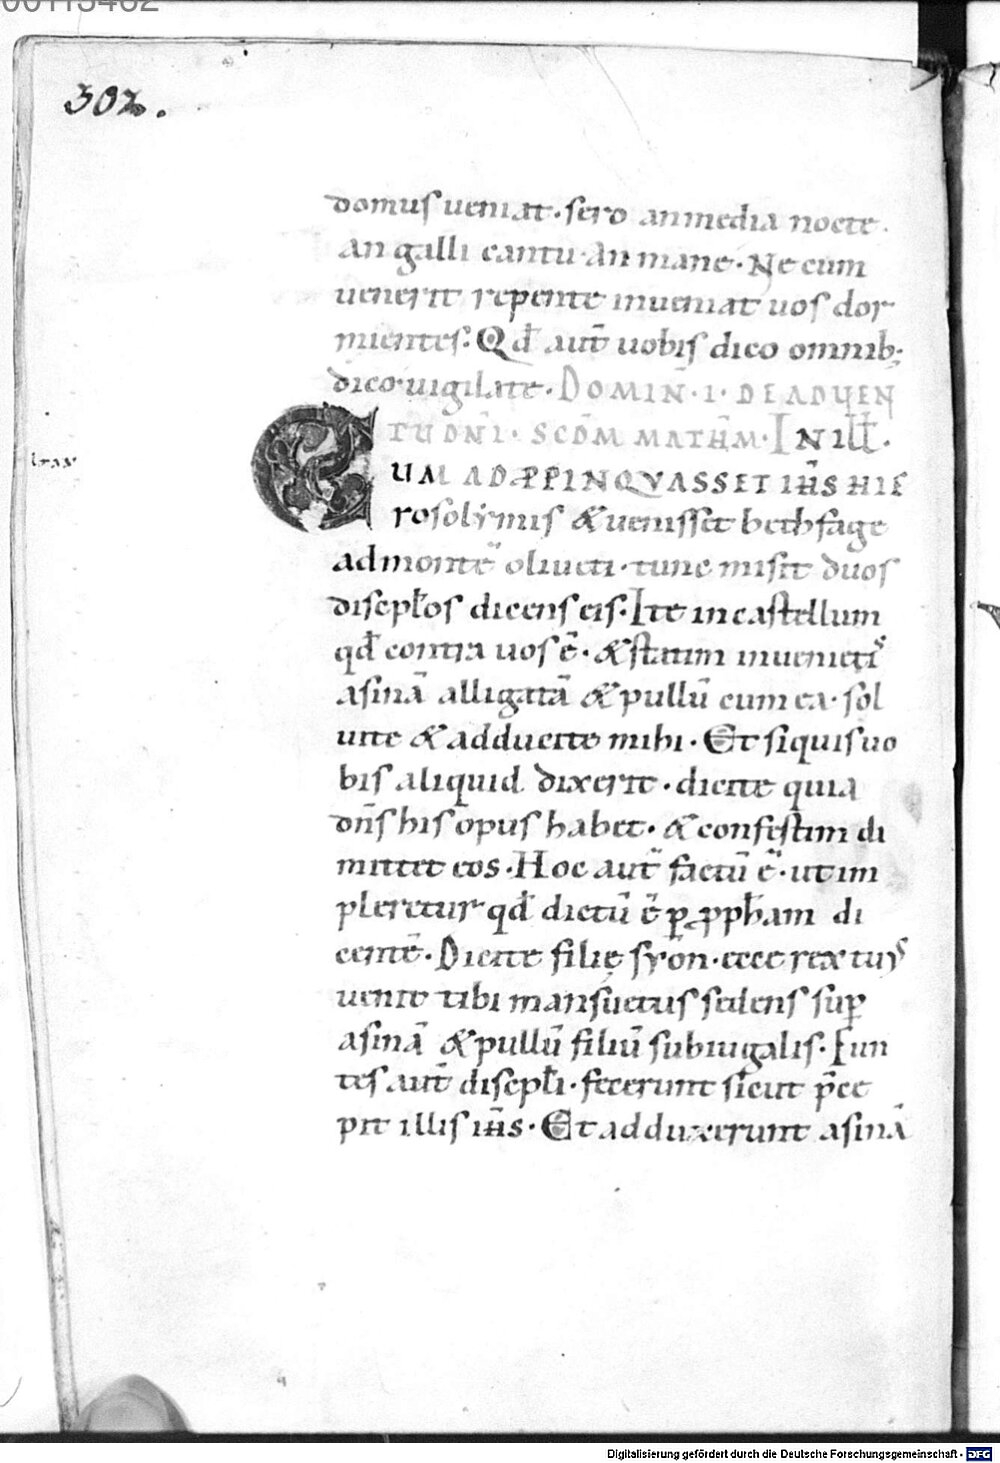 00113462
302.
domus ueniat · sero an media nocte ·
an galli cantu · an mane · Ne cum
uenerit repente inueniat uos dor
mientes · Qđ aut̄ uobis dico omnib;
dico · uigilate · DOMIN̄ · I · DE ADUEN
TU DN̄I · SCDM MATHM · IN ILL̄ ·
CUM ADPROPINQVASSET IH̄S HIE
rosolymis & uenisset bethfage
ad montē oliueti · tunc misit duos
discipl̄os dicens eis · Ite in castellum
qđ contra uos ē · & statim inuenietis
asinā alligatā & pullū cum ea · sol
uite & adducite mihi · Et si quis uo
bis aliquid dixerit · dicite quia
dn̄s his opus habet · & confestim di
mittet eos · Hoc aut̄ factū ē · ut im
pleretur qđ dictū ē ꝑ ꝓph̄am di
centē · Dicite filię syon · ecce rex tuus
uenit tibi mansuetus sedens suꝑ
asinā & pullū filiū subiugalis · Eun
tes aut̄ discipl̄i · fecerunt sicut p̄ce
pit illis ih̄s · Et adduxerunt asinā
Digitalisierung gefördert durch die Deutsche Forschungsgemeinschaft - DFG